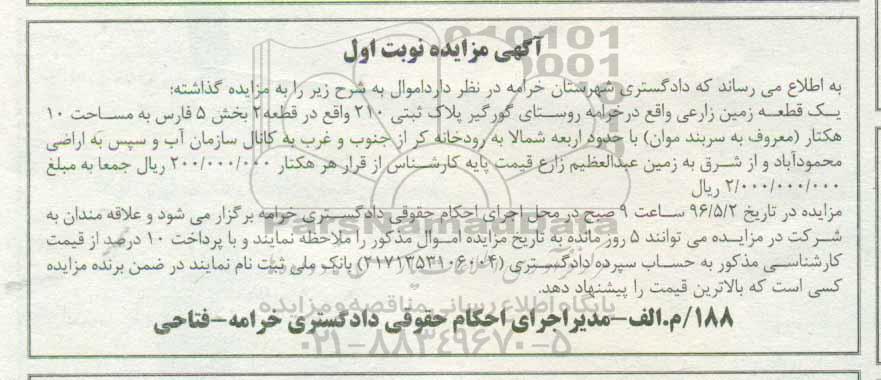 آگهی مزایده نوبت اول
به اطلاع می رساند که دادگستری شهرستان خرامه در نظر دارداموال به شرح زیر را به مزایده گذاشته:
یک قطعه زمین زارعی واقع درخرامه روستای گورگیر پلاک ثبتی ۲۱۰ واقع در قطعه۲ بخش ۵ فارس به مساحت ۱۰
هکتار (معروف به سربند موان) با حدود اربعه شمالا به رودخانه کر از جنوب و غرب به کانال سازمان آب و سپس به اراضی
محمودآباد و از شرق به زمین عبدالعظیم زارع قیمت پایه کارشناس از قرار هر هکتار ۲۰۰/۰۰۰/۰۰۰ ریال جمعا به مبلغ
۲/۰۰۰/۰۰۰/۰۰۰ ریال
مزایده در تاریخ ۹۶/۵/۲ ساعت ۹ صبح در محل اجرای احکام حقوقی دادگستری خرامه برگزار می شود و علاقه مندان به
شرکت در مزایده می توانند ۵ روز مانده به تاریخ مزایده اموال مذکور را ملاحظه نمایند و با پرداخت ۱۰ درصد از قیمت
کارشناسی مذکور به حساب سپرده دادگستری (۲۱۷۱۳۵۳۱۰۶۰۰۴) بانک ملی ثبت نام نمایند در ضمن برنده مزایده
کسی است که بالاترین قیمت را پیشنهاد دهد.
۱۸۸/م.الف-مدیراجرای احکام حقوقی دادگستری خرامه-فتاحی
ParsNamadData
پایگاه اطلاع رسانی مناقصه و مزایده
۰۲۱-۸۸۳۴۹۶۷۰-۵